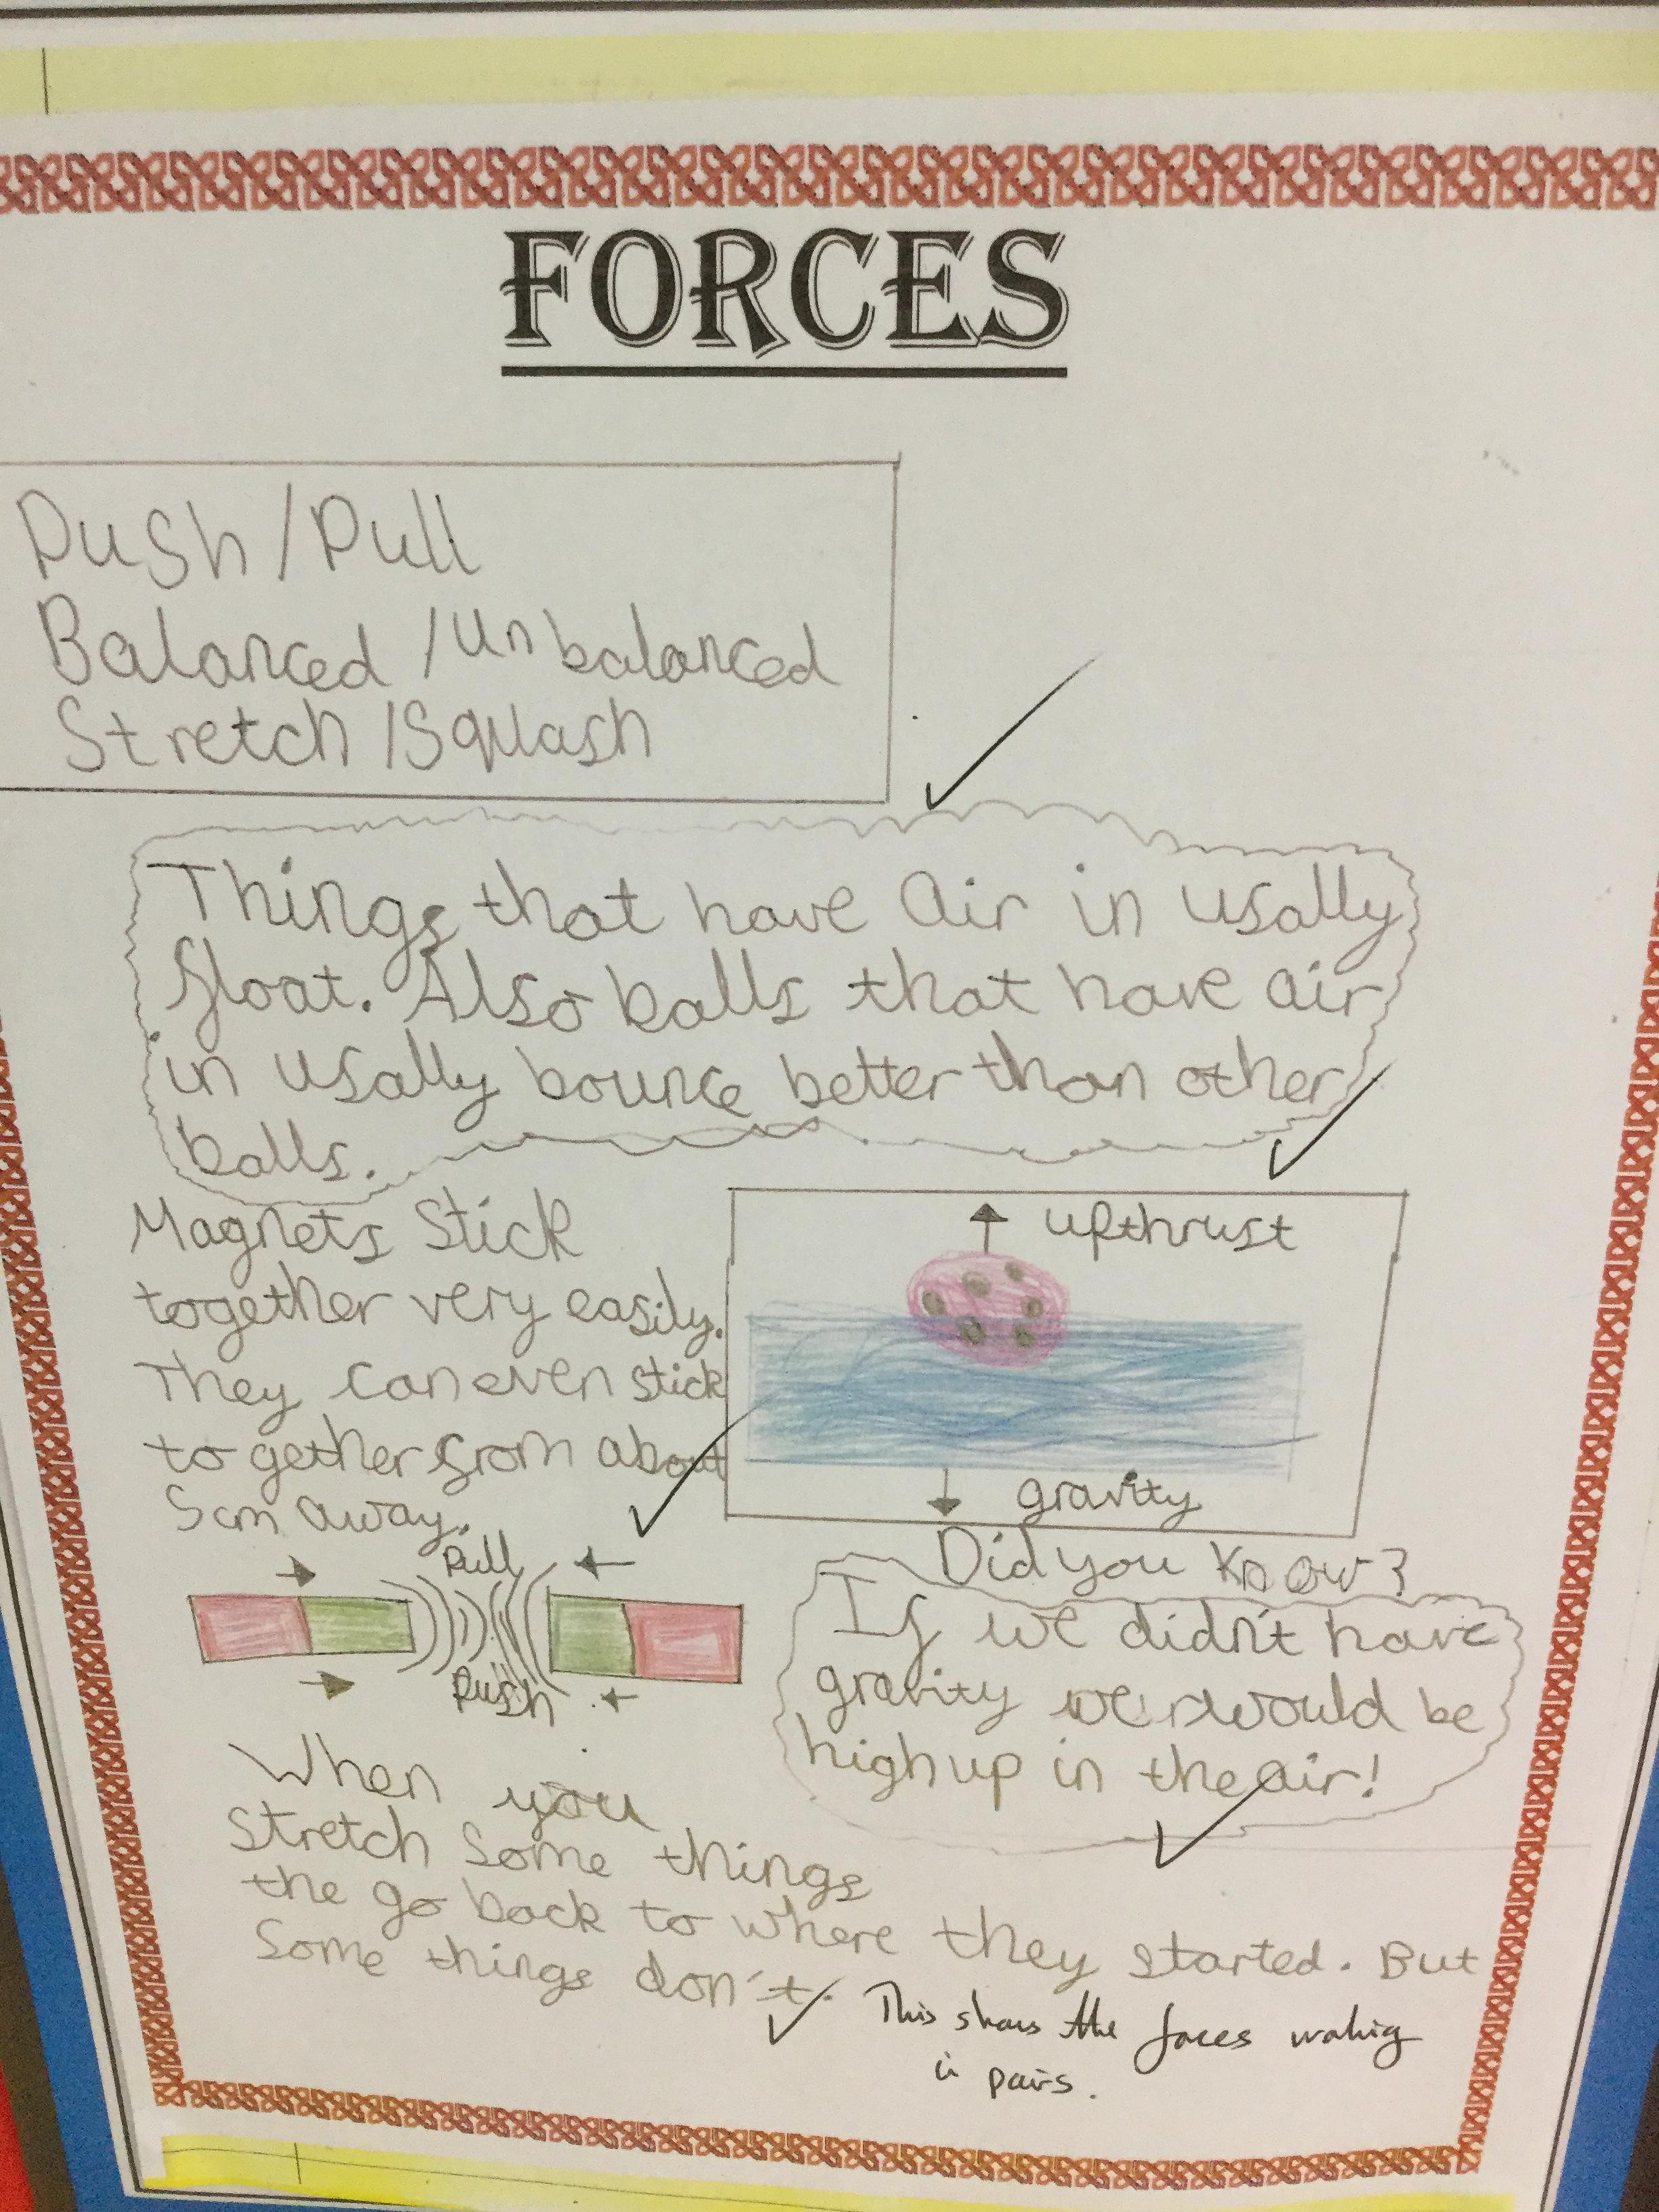 FORCES
Push/Pull
Balanced/Unbalanced
Stretch/Squash
Things that have air in usally
float. Also balls that have air
in usally bounce better than other
balls.
Magnets stick
together very easily.
They can even stick
together from about
5cm away.
Pull
Push
upthrust
gravity
Did you know?
If we didn't have
gravity we would be
high up in the air!
When you
stretch some things
the go back to where they started. But
some things don't.
This shows the forces working
in pairs.